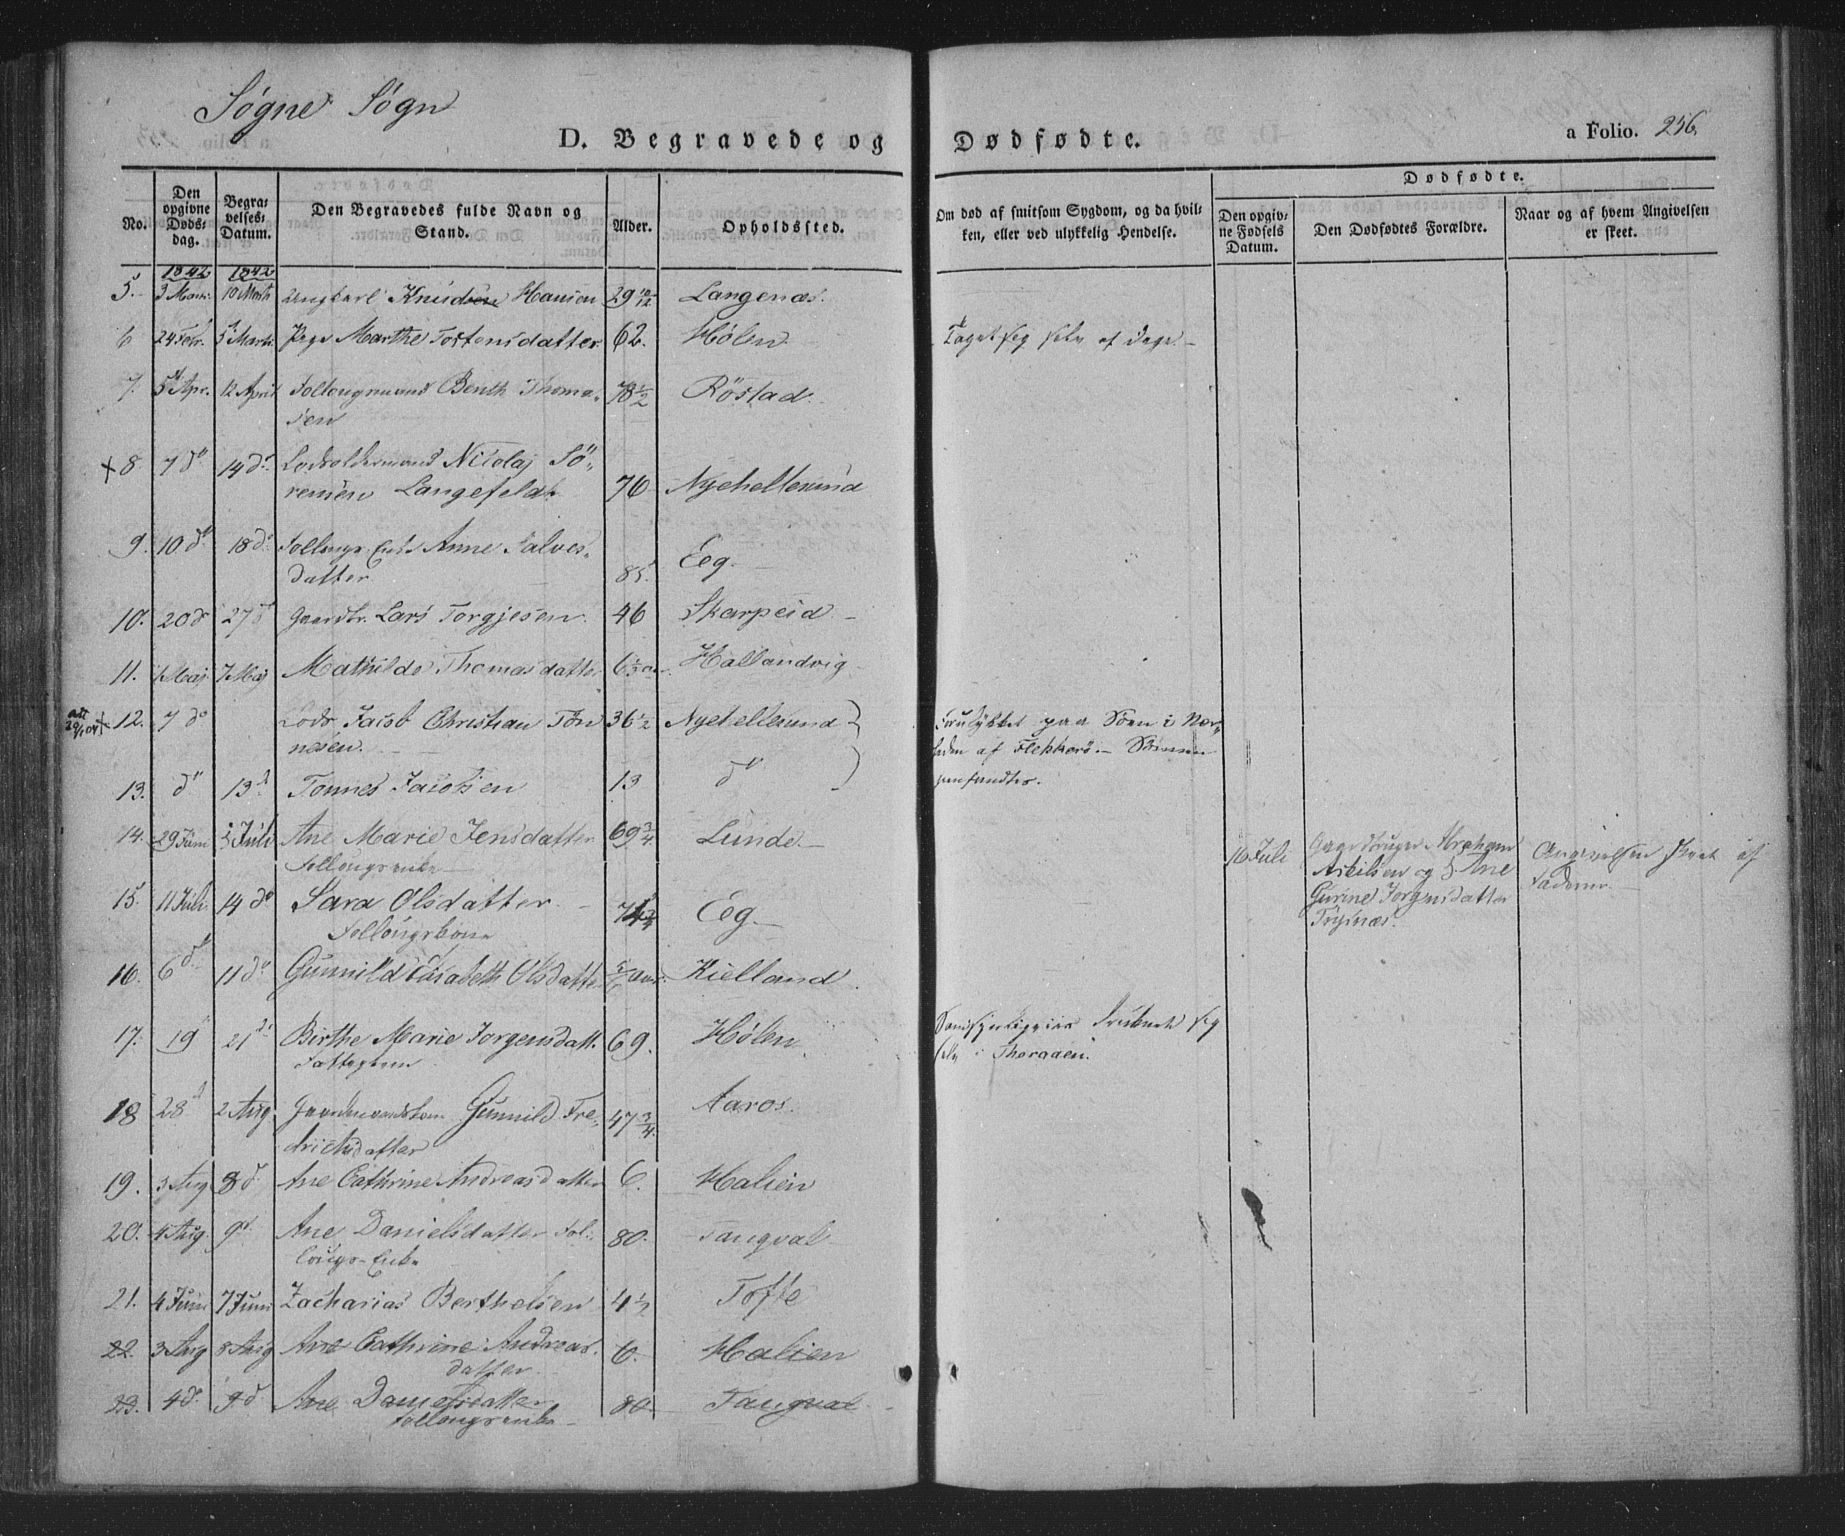 Søgne Søgn
D. Begravede og Dødfødte.
a Folio. 256.
No.
Den opgivne Døds-dag.
Begra-velses-Datum.
Den Begravedes fulde Navn og Stand.
Alder.
Opholdssted.
Om død af smitsom Sygdom, og da hvil-ken, eller ved ulykkelig Hendelse.
Dødfødte.
Den opgiv-ne Fødsels Datum.
Den Dødfødtes Forældre.
Naar og af hvem Angivelsen er skeet.
1842 1842
5. 3 Marts 10 Marts Ungkarl Knudsen Hansen 29 10/12 Langenæs.
6 24 Febr. 5 Marts Pige Marthe Tostensdatter. 62. Hølen Taget sig selv af Dage.
7. 5 Apr. 12 April Follougmand Benth Thoma-
sen 78 1/2 Röstad
+ 8. 7 do 14 do Lodsoldermand Nicolaj Sö-
rensen Langefeldt 76 Nyehellesund
9. 10 do 18 do Follougs Enke Anne Salves-
datter 85. Eeg.
10. 20 do 27 do Gaardbr. Lars Torgjesen. 46 Skarpeid
11. 1 Maj 7 Maj Mathilde Thomasdatter 6 1/3 Hallandvig
12. 7 do Lods Jacob Christian Tön
nesen. 36 1/2 Nyehellesund } Forulykket paa Söen i Nær-
heden af Flekkerö.
13. do 13 d Tönnes Jacobsen 13 do
14. 29 Juni 5 Juli Ane Marie Jensdatter 69 3/4 Lunde
Follougsenke
16 Juli Gaardbruger Abraham
Askilsen og Ane
Gurine Jorgensdatter
Angivelsen skeet af
Faderen.
15. 11 Juli 14 do Sara Olsdatter 74 Eeg
Follougskone
16. 6 d 11 do Gunnild Elisabeth Olsdatter Kielland
17. 19 21 d Birthe Marie Jorgensdatt. 69. Hølen
selv i Thoraaen.
18 28 d 2 Aug. Gaardmandskone Gunnild Fre-
drichsdatter 47 3/4. Aaros.
19. 3 Aug 8 d Ane Cathrine Andreasdatter 6. Halien
20. 4 Aug. 9 d Ane Danielsdatter Fol-
lougs-Enke 80. Tangval
21. 4 Juni 7 Juni Zacharias Berthelsen 4 1/2 Tofte
22. 3 Aug 8 Aug Ane Cathrine Andreas-
datter 6. Halien
23. 4 d. 9 d. Ane Danielsdatter 80 Tangval
Follougsenke